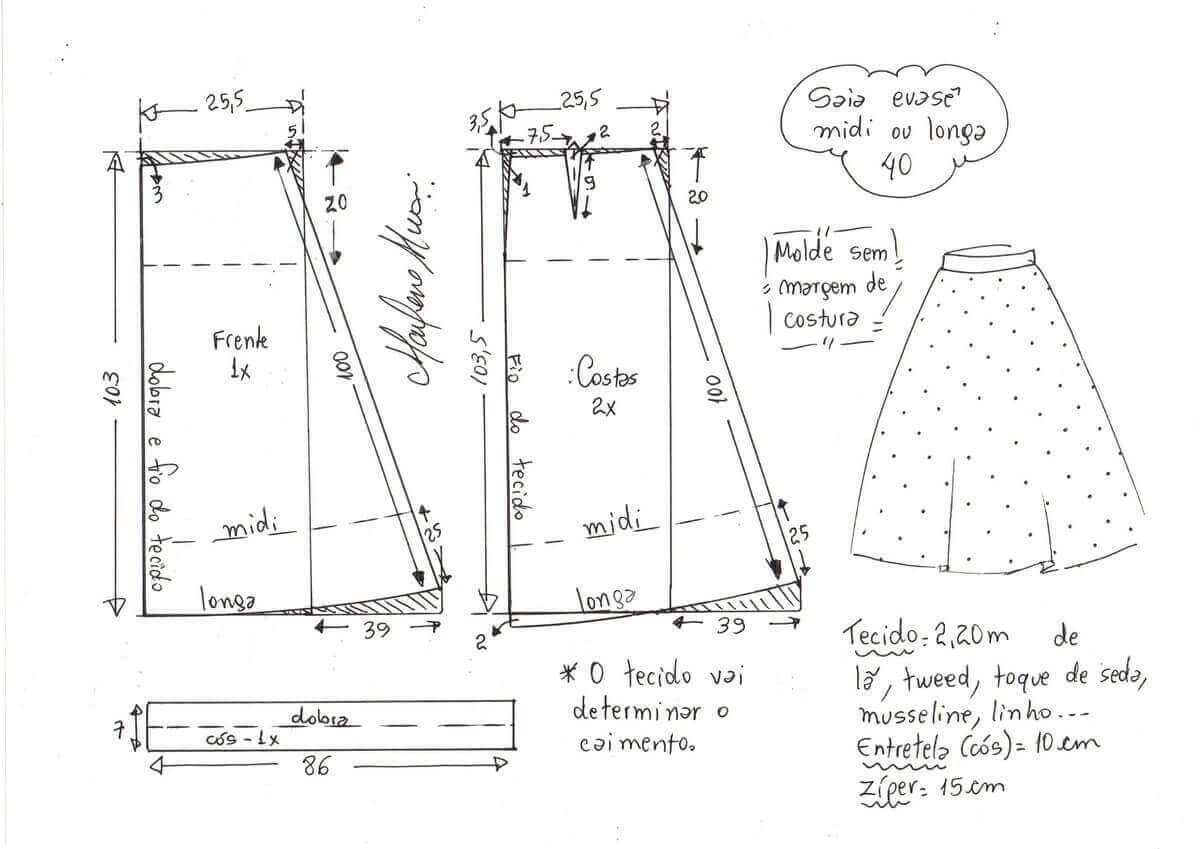 25,5
5
3
20
103
Frente
1x
dobra e fio do tecido
100
midi
25
longa
39
Marlene Mukai
25,5
3,5
7,5
2
2
1
9
20
103,5
Fio do tecido
Costas
2x
100
midi
25
longa
2
39
Saia evasê
midi ou longa
40
Molde sem
margem de
costura
7
dobra
cós - 1x
86
* O tecido vai
determinar o
caimento.
Tecido = 2,20m de
lã, tweed, toque de seda,
musseline, linho...
Entretela (cós) = 10 cm
zíper = 15 cm